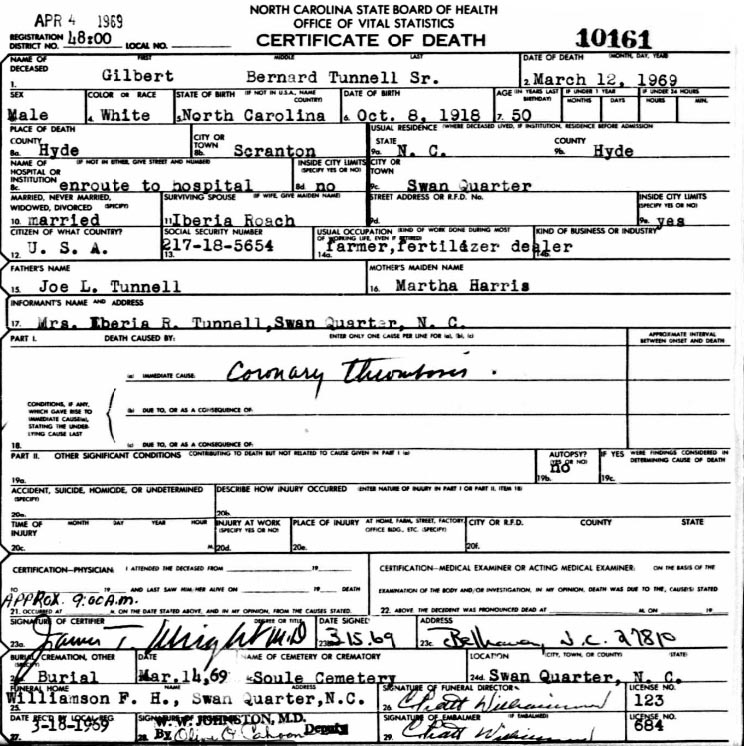 NORTH CAROLINA STATE BOARD OF HEALTH
OFFICE OF VITAL STATISTICS
CERTIFICATE OF DEATH
APR 4 1969
10161
REGISTRATION DISTRICT NO. 48:00 LOCAL NO.
NAME OF DECEASED FIRST MIDDLE LAST DATE OF DEATH (MONTH, DAY, YEAR)
1. Gilbert Bernard Tunnell Sr. 2. March 12, 1969
SEX COLOR OR RACE STATE OF BIRTH (IF NOT IN U.S.A., NAME COUNTRY) DATE OF BIRTH AGE (IN YEARS LAST BIRTHDAY) IF UNDER 1 YEAR MONTHS DAYS IF UNDER 24 HOURS HOURS MIN.
Male 4. White 5. North Carolina 6. Oct. 8, 1918 7. 50
PLACE OF DEATH USUAL RESIDENCE (WHERE DECEASED LIVED, IF INSTITUTION, RESIDENCE BEFORE ADMISSION
COUNTY CITY OR TOWN STATE COUNTY
8a. Hyde 8b. Scranton 9a. N. C. 9b. Hyde
NAME OF HOSPITAL OR INSTITUTION (IF NOT IN EITHER, GIVE STREET AND NUMBER) INSIDE CITY LIMITS (SPECIFY YES OR NO) CITY OR TOWN
8c. enroute to hospital 8d. no 9c. Swan Quarter
MARRIED, NEVER MARRIED, WIDOWED, DIVORCED (SPECIFY) SURVIVING SPOUSE (IF WIFE, GIVE MAIDEN NAME) STREET ADDRESS OR R.F.D. No. INSIDE CITY LIMITS (SPECIFY YES OR NO)
10. married 11. Iberia Roach 9d. 9e. yes
CITIZEN OF WHAT COUNTRY? SOCIAL SECURITY NUMBER USUAL OCCUPATION (KIND OF WORK DONE DURING MOST OF WORKING LIFE, EVEN IF RETIRED) KIND OF BUSINESS OR INDUSTRY
12. U. S. A. 13. 217-18-5654 14a. farmer,fertilizer dealer 14b.
FATHER'S NAME MOTHER'S MAIDEN NAME
15. Joe L. Tunnell 16. Martha Harris
INFORMANT'S NAME AND ADDRESS
17. Mrs. Iberia R. Tunnell,Swan Quarter, N. C.
PART I. DEATH CAUSED BY: ENTER ONLY ONE CAUSE PER LINE FOR (a), (b), (c) APPROXIMATE INTERVAL BETWEEN ONSET AND DEATH
(a) IMMEDIATE CAUSE: Coronary Thrombosis.
CONDITIONS, IF ANY, WHICH GAVE RISE TO IMMEDIATE CAUSE(a), STATING THE UNDERLYING CAUSE LAST
(b) DUE TO, OR AS A CONSEQUENCE OF:
18. (c) DUE TO, OR AS A CONSEQUENCE OF:
PART II. OTHER SIGNIFICANT CONDITIONS CONTRIBUTING TO DEATH BUT NOT RELATED TO CAUSE GIVEN IN PART I (a) AUTOPSY? (YES OR NO) IF YES WERE FINDINGS CONSIDERED IN DETERMINING CAUSE OF DEATH
19a. no 19b. 19c.
ACCIDENT, SUICIDE, HOMICIDE, OR UNDETERMINED (SPECIFY) DESCRIBE HOW INJURY OCCURRED (ENTER NATURE OF INJURY IN PART I OR PART II, ITEM 18)
20a. 20b.
TIME OF INJURY MONTH DAY YEAR HOUR INJURY AT WORK (SPECIFY YES OR NO) PLACE OF INJURY AT HOME, FARM, STREET, FACTORY, OFFICE BLDG., ETC. (SPECIFY) CITY OR R.F.D. COUNTY STATE
20c. M. 20d. 20e. 20f.
CERTIFICATION—PHYSICIAN: I ATTENDED THE DECEASED FROM 19 CERTIFICATION—MEDICAL EXAMINER OR ACTING MEDICAL EXAMINER: ON THE BASIS OF THE
TO 19 AND LAST SAW HIM/HER ALIVE ON 19 DEATH EXAMINATION OF THE BODY AND/OR INVESTIGATION, IN MY OPINION, DEATH WAS DUE TO THE, CAUSE(S) STATED
APPROX. 9:00 A.m.
21. OCCURRED AT M. ON THE DATE STATED ABOVE, AND IN MY OPINION, FROM THE CAUSES STATED. 22. ABOVE. THE DECEDENT WAS PRONOUNCED DEAD AT M. ON 19
SIGNATURE OF CERTIFIER DEGREE OR TITLE DATE SIGNED ADDRESS
23a. James T. Wright M.D 23b. 3.15.69 23c. Belhaven, N.C. 27810
BURIAL, CREMATION, OTHER (SPECIFY) DATE NAME OF CEMETERY OR CREMATORY LOCATION (CITY, TOWN, OR COUNTY) (STATE)
Burial Mar.14,69 Soule Cemetery 24d. Swan Quarter, N. C.
FUNERAL HOME NAME ADDRESS SIGNATURE OF FUNERAL DIRECTOR LICENSE NO.
25. Williamson F. H., Swan Quarter,N.C. 26. 123
DATE REC'D BY LOCAL REG SIGNATURE W. W. JOHNSTON, M.D. SIGNATURE OF EMBALMER (IF EMBALMED) LICENSE NO.
27. 3-18-1969 28. By Olive O. Cahoon Deputy 29. 684